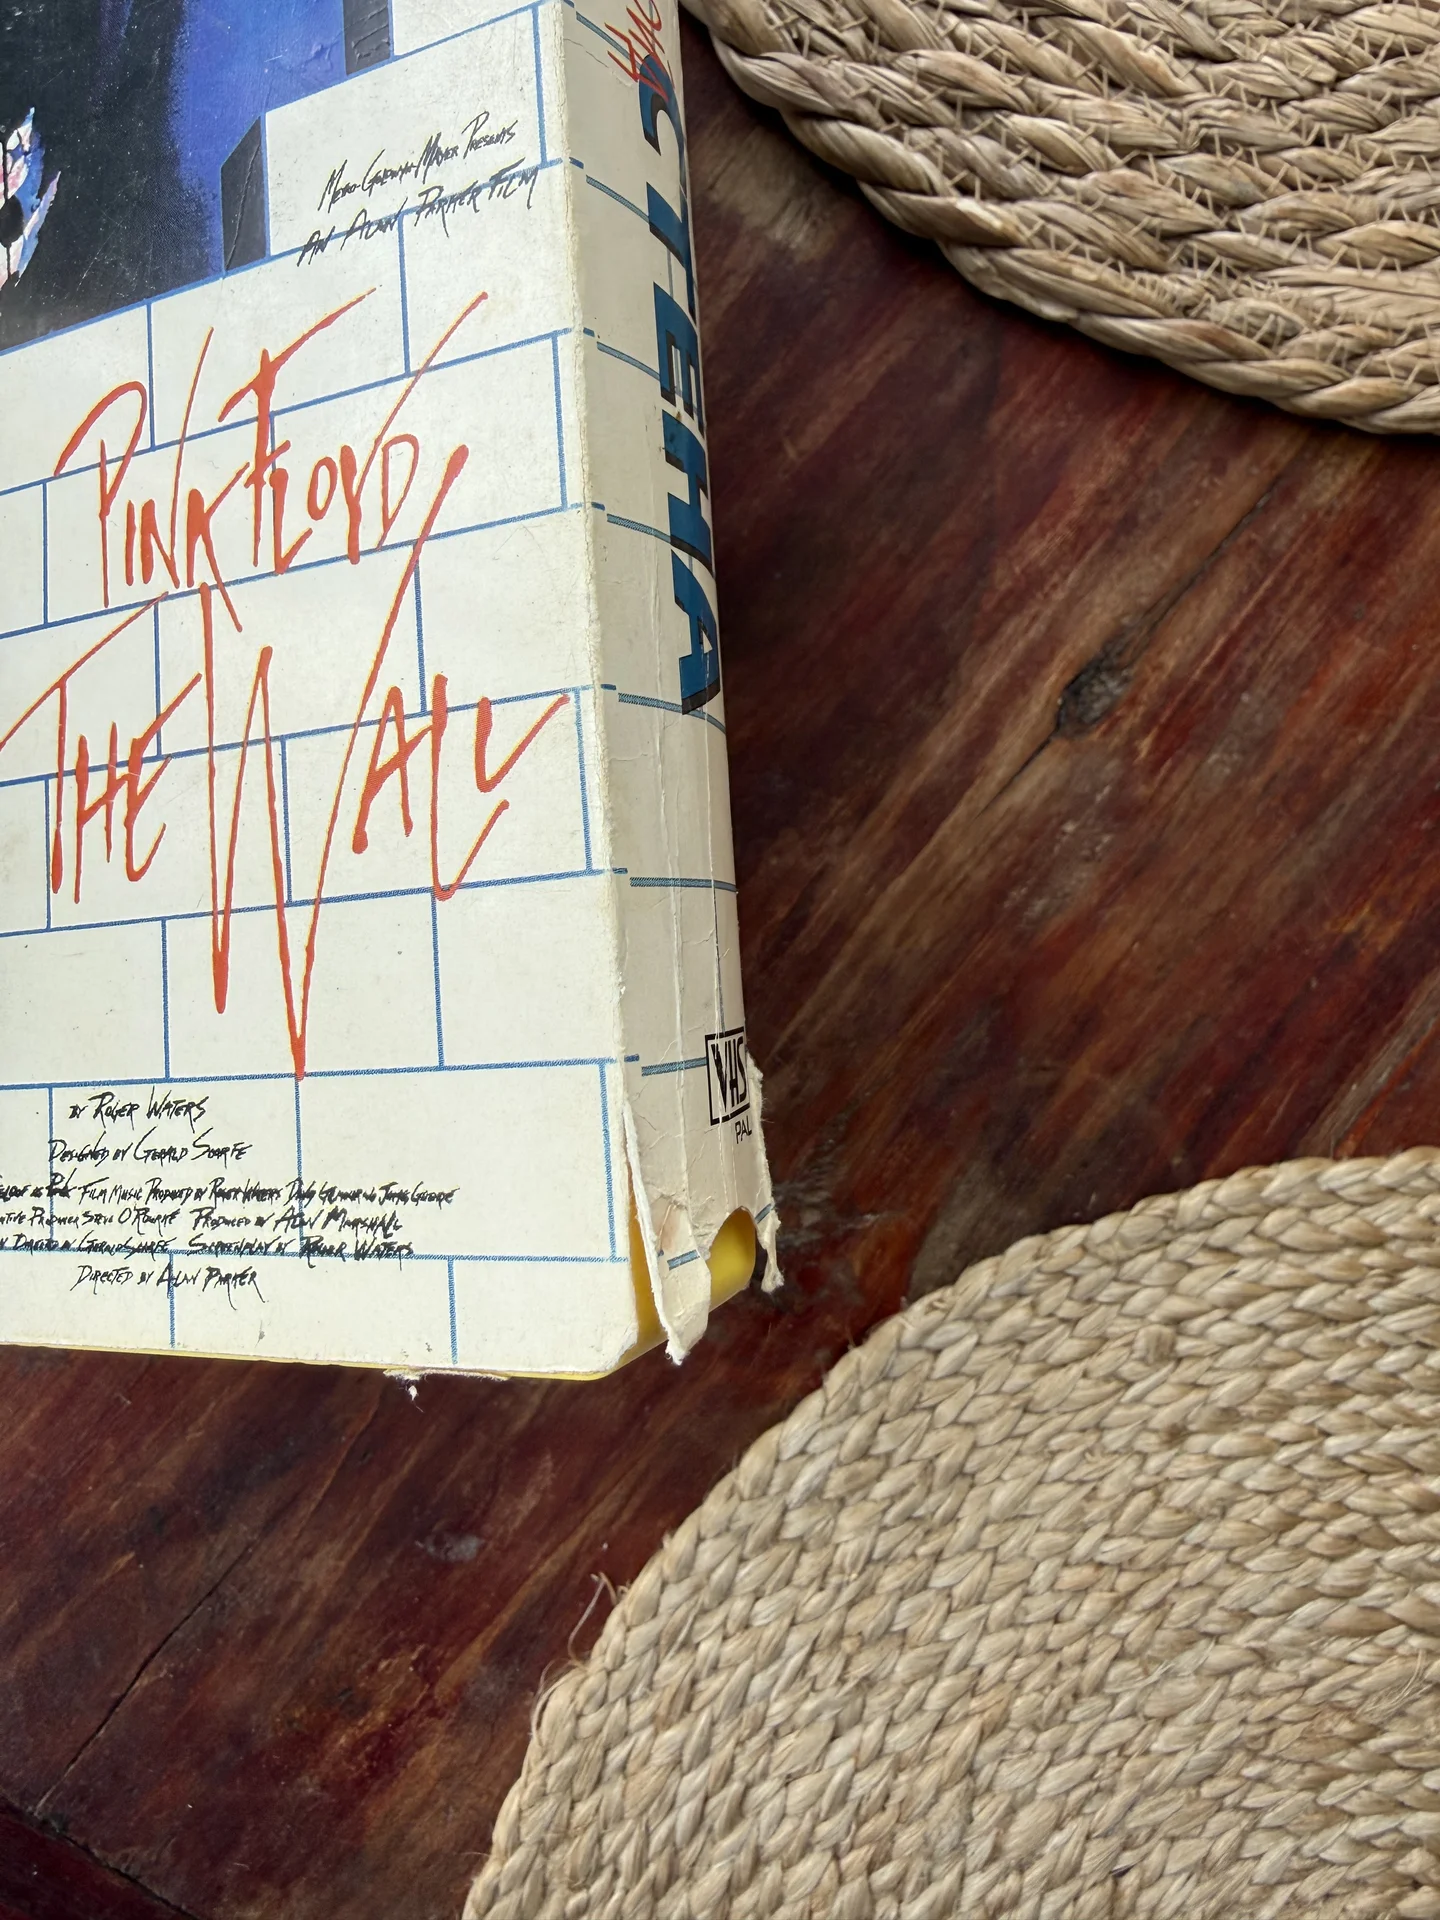 METRO-GOLDWYN-MAYER PRESENTS
AN ALAN PARKER FILM
PINK FLOYD
THE WALL
BY ROGER WATERS
DESIGNED BY GERALD SCARFE
AS PINK FILM MUSIC PRODUCED BY ROGER WATERS DAVID GILMOUR AND JAMES GUTHRIE
PRODUCER STEVE O'ROURKE PRODUCED BY ALAN MARSHALL
DIRECTED BY GERALD SCARFE SCREENPLAY BY ROGER WATERS
DIRECTED BY ALAN PARKER
СТЕНА
VHS
PAL